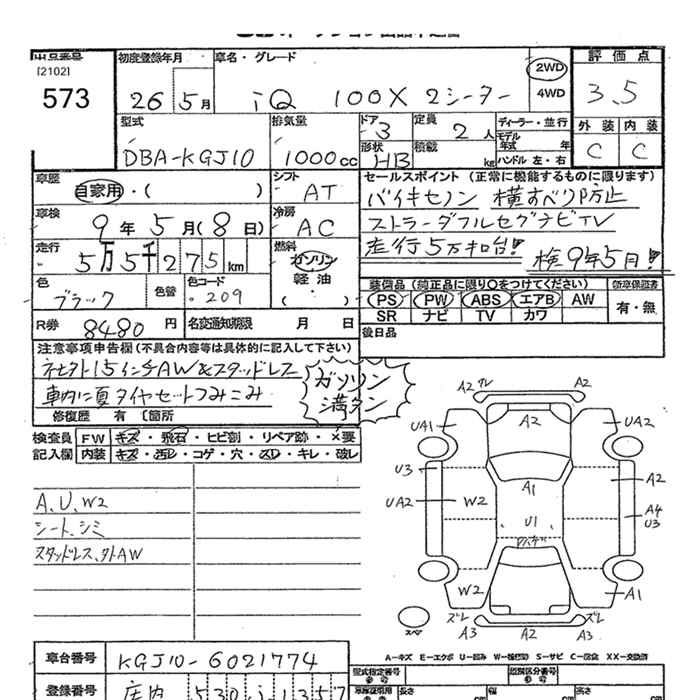 出品番号
[2102]
573
初度登録年月
26 5月
車名・グレード
iQ 100X 2シーター
2WD
4WD
評価点
3.5
外装 内装
C C
型式
DBA-KGJ10
排気量
1000cc
ドア
3
形状
HB
定員
2人
積載
kg
ディーラー・並行
モデル年式 年
ハンドル 左・右
車歴
自家用・( )
シフト
AT
車検
9年5月(8日)
冷房
AC
走行
5万5千275km
燃料
ガソリン
軽油
( )
色
ブラック
色替
色コード
209
R券
8480円
名変通知期限 月 日
セールスポイント (正常に機能するものに限ります)
バイキセノン 横すべり防止
ストラーダフルセグナビTV
走行5万キロ台! 検9年5月!
装備品 (純正品に限り〇をつけてください)
PS PW ABS エアB AW
SR ナビ TV カワ
新車保証書
有・無
後日品
注意事項申告欄(不具合内容等は具体的に記入して下さい)
社外15インチAW&スタッドレス
車内に夏タイヤセットつみこみ
修復歴 有 〔箇所
ガソリン
満タン
検査員
記入欄
FW キズ・飛石・ヒビ割・リペア跡・×要
内装 キズ・汚レ・コゲ・穴・スレ・キレ・破レ
A、U、W2
シート、シミ
スタッドレス、外AW
A2
A2
A2
UA1
UA2
U3
A1
A2
UA2
W2
A4
U3
U1
W2
A1
スペア
ズレ
A3
A2
ズレ
A3
A-キズ E-エクボ U-凹み W-補修跡 S-サビ C-腐食 XX-交換済
車台番号
KGJ10-6021774
型式指定番号
類別区分番号
登録番号
庄内 530
長さ
幅
高さ